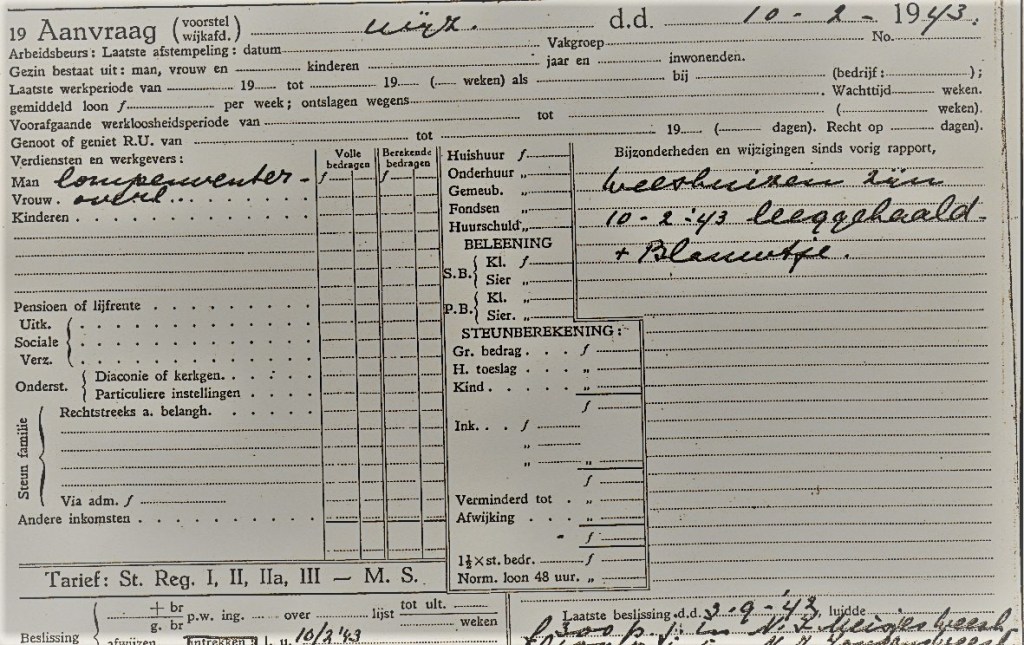 19 Aanvraag (voorstel wijkafd.) wijz. d.d. 10 - 2 - 1943.
Arbeidsbeurs: Laatste afstempeling: datum Vakgroep No.
Gezin bestaat uit: man, vrouw en kinderen jaar en inwonenden.
Laatste werkperiode van 19 tot 19 ( weken) als bij (bedrijf: );
gemiddeld loon f per week; ontslagen wegens . Wachttijd weken.
Voorafgaande werkloosheidsperiode van tot ( weken).
Genoot of geniet R.U. van tot 19 ( dagen). Recht op dagen).
Verdiensten en werkgevers:
Volle bedragen
Berekende bedragen
Man lompenventer - f f
Vrouw. overl.
Kinderen
Pensioen of lijfrente
Uitk.
Sociale
Verz.
Onderst. { Diaconie of kerkgen.
Particuliere instellingen
Steun familie
Rechtstreeks a. belangh.
Via adm. f
Andere inkomsten
Tarief: St. Reg. I, II, IIa, III — M. S.
Huishuur f
Onderhuur „
Gemeub. „
Fondsen „
Huurschuld „
BELEENING
S.B. { Kl. f
Sier „
P.B. { Kl. „
Sier. „
STEUNBEREKENING:
Gr. bedrag . . . f
H. toeslag . . . „
Kind . . . . „
f
Ink. . . f
„
„ „
f
Verminderd tot . „
Afwijking . . . „
- f
1½ × st. bedr. f
Norm. loon 48 uur. „
Bijzonderheden en wijzigingen sinds vorig rapport,
weeshuizen zijn
10 - 2 - '43 leeggehaald -
+ Blauwtje.
Beslissing
+ br
g. br
p.w. ing. over lijst tot ult.
weken
afwijzen
Intrekken
I. u. 10/2 '43
Laatste beslissing d.d. 3 - 9 - 42, luidde
in N. I. Meisjesweesh